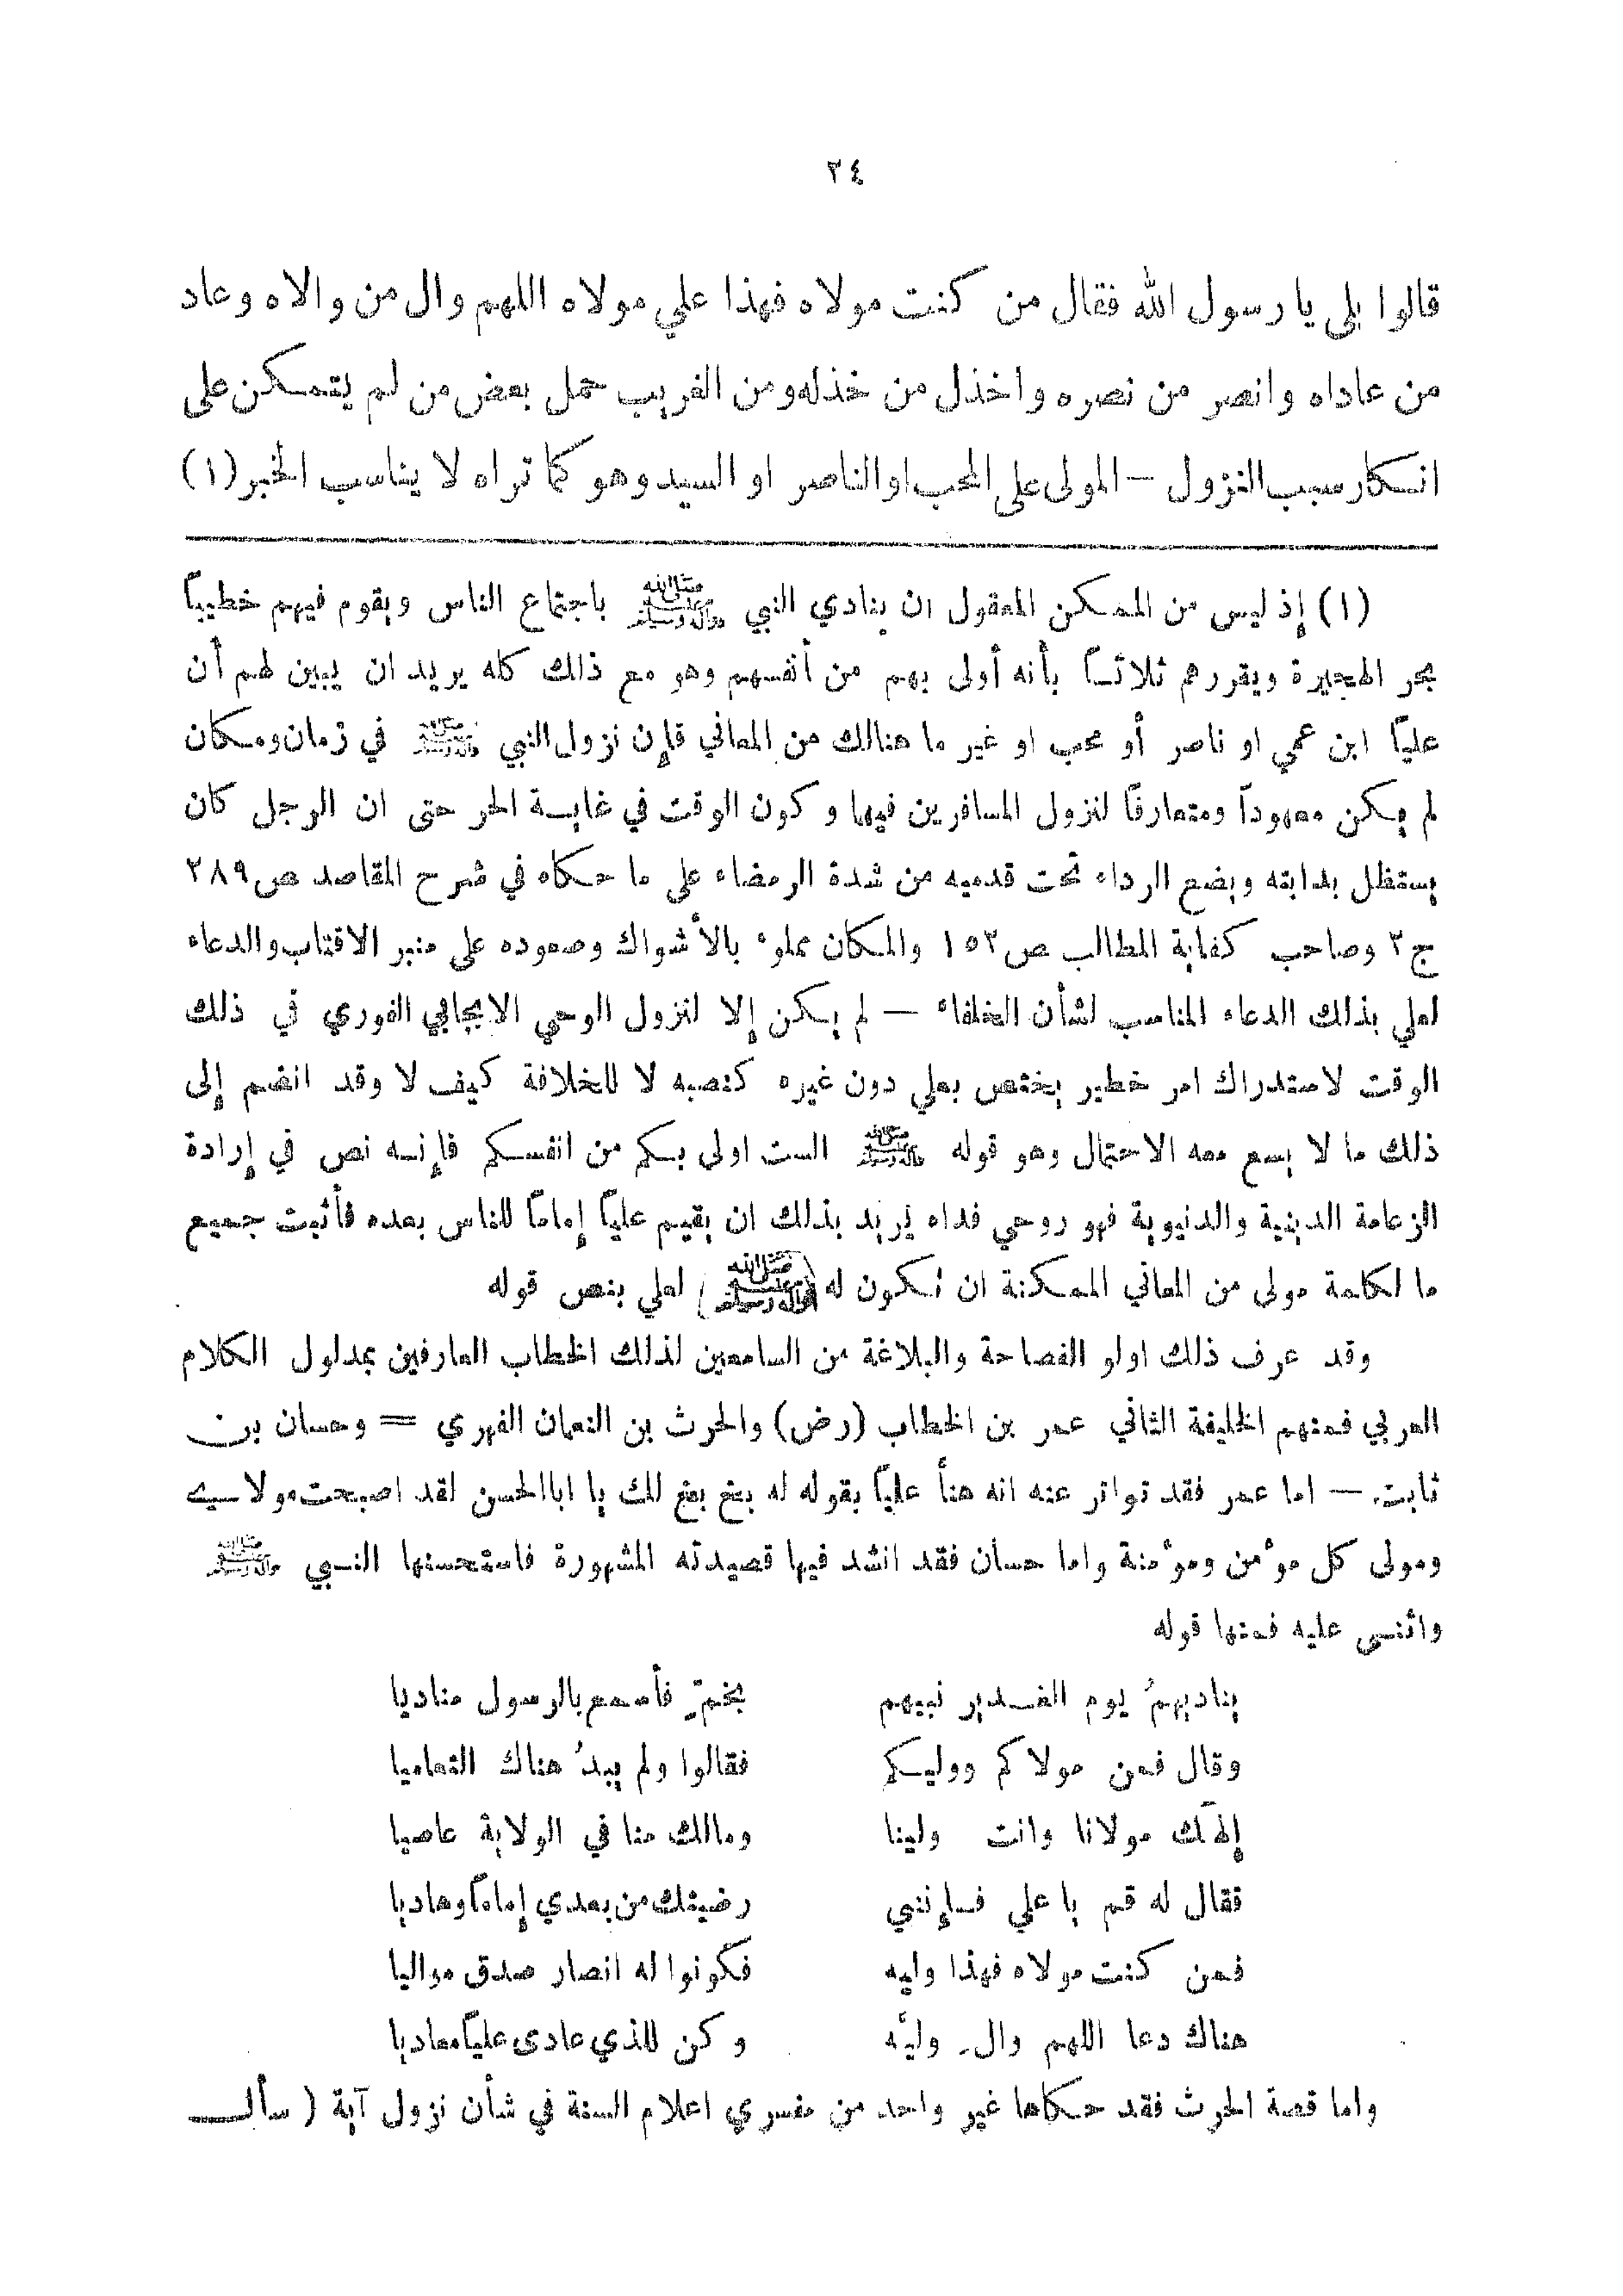 ٢٤
قالوا بلى يا رسول الله فقال من كنت مولاه فهذا علي مولاه اللهم وال من والاه وعاد
من عاداه وانصر من نصره واخذل من خذله ومن الغريب حمل بعض من لم يتمكن على
انكار سبب النزول — المولى على المحب او الناصر او السيد وهو كما تراه لا يناسب الخبر (١)
(١) إذ ليس من الممكن المعقول ان ينادي النبي ﷺ باجتماع الناس ويقوم فيهم خطيباً
بحر الهجيرة ويقررهم ثلاثاً بأنه أولى بهم من أنفسهم وهو مع ذلك كله يريد ان يبين لهم أن
علياً ابن عمي او ناصر أو محب او غير ما هنالك من المعاني فإن نزول النبي ﷺ في زمان ومكان
لم يكن معهوداً ومتعارفاً لنزول المسافرين فيها وكون الوقت في غاية الحر حتى ان الرجل كان
يستظل بدابته ويضع الرداء تحت قدميه من شدة الرمضاء على ما حكاه في شرح المقاصد ص ٢٨٩
ج ٢ وصاحب كفاية المطالب ص ١٥٣ والمكان مملوء بالأشواك وصعوده على منبر الاقتاب والدعاء
لعلي بذلك الدعاء المناسب لشأن الخلفاء — لم يكن إلا لنزول الوحي الايجابي الفوري في ذلك
الوقت لاستدراك امر خطير يختص بعلي دون غيره كنصبه لا للخلافة كيف لا وقد انضم إلى
ذلك ما لا يسع معه الاحتمال وهو قوله ﷺ الست اولى بكم من انفسكم فإنه نص في إرادة
الزعامة الدينية والدنيوية فهو روحي فداه يريد بذلك ان يقيم علياً إماماً للناس بعده فأثبت جميع
ما لكلمة مولى من المعاني الممكنة ان تكون له (ﷺ) لعلي بنص قوله
وقد عرف ذلك اولو الفصاحة والبلاغة من السامعين لذلك الخطاب العارفين بمدلول الكلام
العربي فمنهم الخليفة الثاني عمر بن الخطاب (رض) والحرث بن النعمان الفهري = وحسان بن
ثابت. — اما عمر فقد تواتر عنه انه هنأ علياً بقوله له بخ بخ لك يا ابا الحسن لقد اصبحت مولاي
ومولى كل مؤمن ومؤمنة واما حسان فقد انشد فيها قصيدته المشهورة فاستحسنها النبي ﷺ
واثنى عليه فمنها قوله
يناديهمُ يوم الغدير نبيهم بخمّ فأسمع بالرسول مناديا
وقال فمن مولاكم ووليكم فقالوا ولم يبدُ هناك التعاميا
إلهَك مولانا وانت ولينا ومالك منا في الولاية عاصيا
فقال له قم يا علي فإنني رضيتك من بعدي إماماً وهاديا
فمن كنت مولاه فهذا وليه فكونوا له انصار صدق مواليا
هناك دعا اللهم وال وليّه وكن للذي عادى علياً معاديا
واما قصة الحرث فقد حكاها غير واحد من مفسري اعلام السنة في شأن نزول آية ( سأل